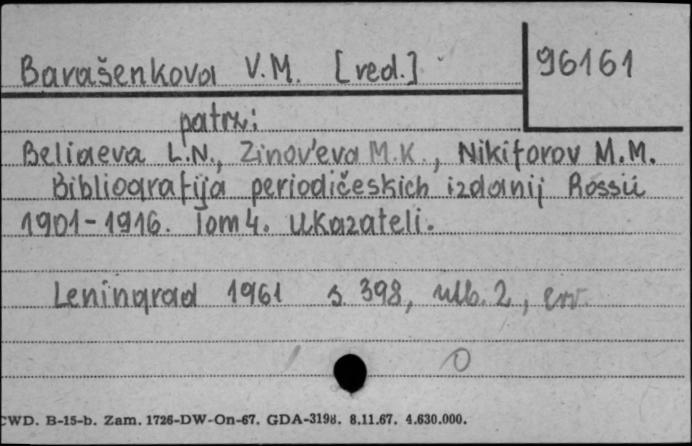 Barašenkova V.M. [red.]
96161
patrz:
Beliaeva L.N., Zinov'eva M.K., Nikiforov M.M.
Bibliografija periodičeskich izdanij Rossii
1901-1916. Tom 4. Ukazateli.
Leningrad 1961 s. 398, nlb. 2, err.
0
CWD. B-15-b. Zam. 1726-DW-On-67. GDA-3198. 8.11.67. 4.630.000.